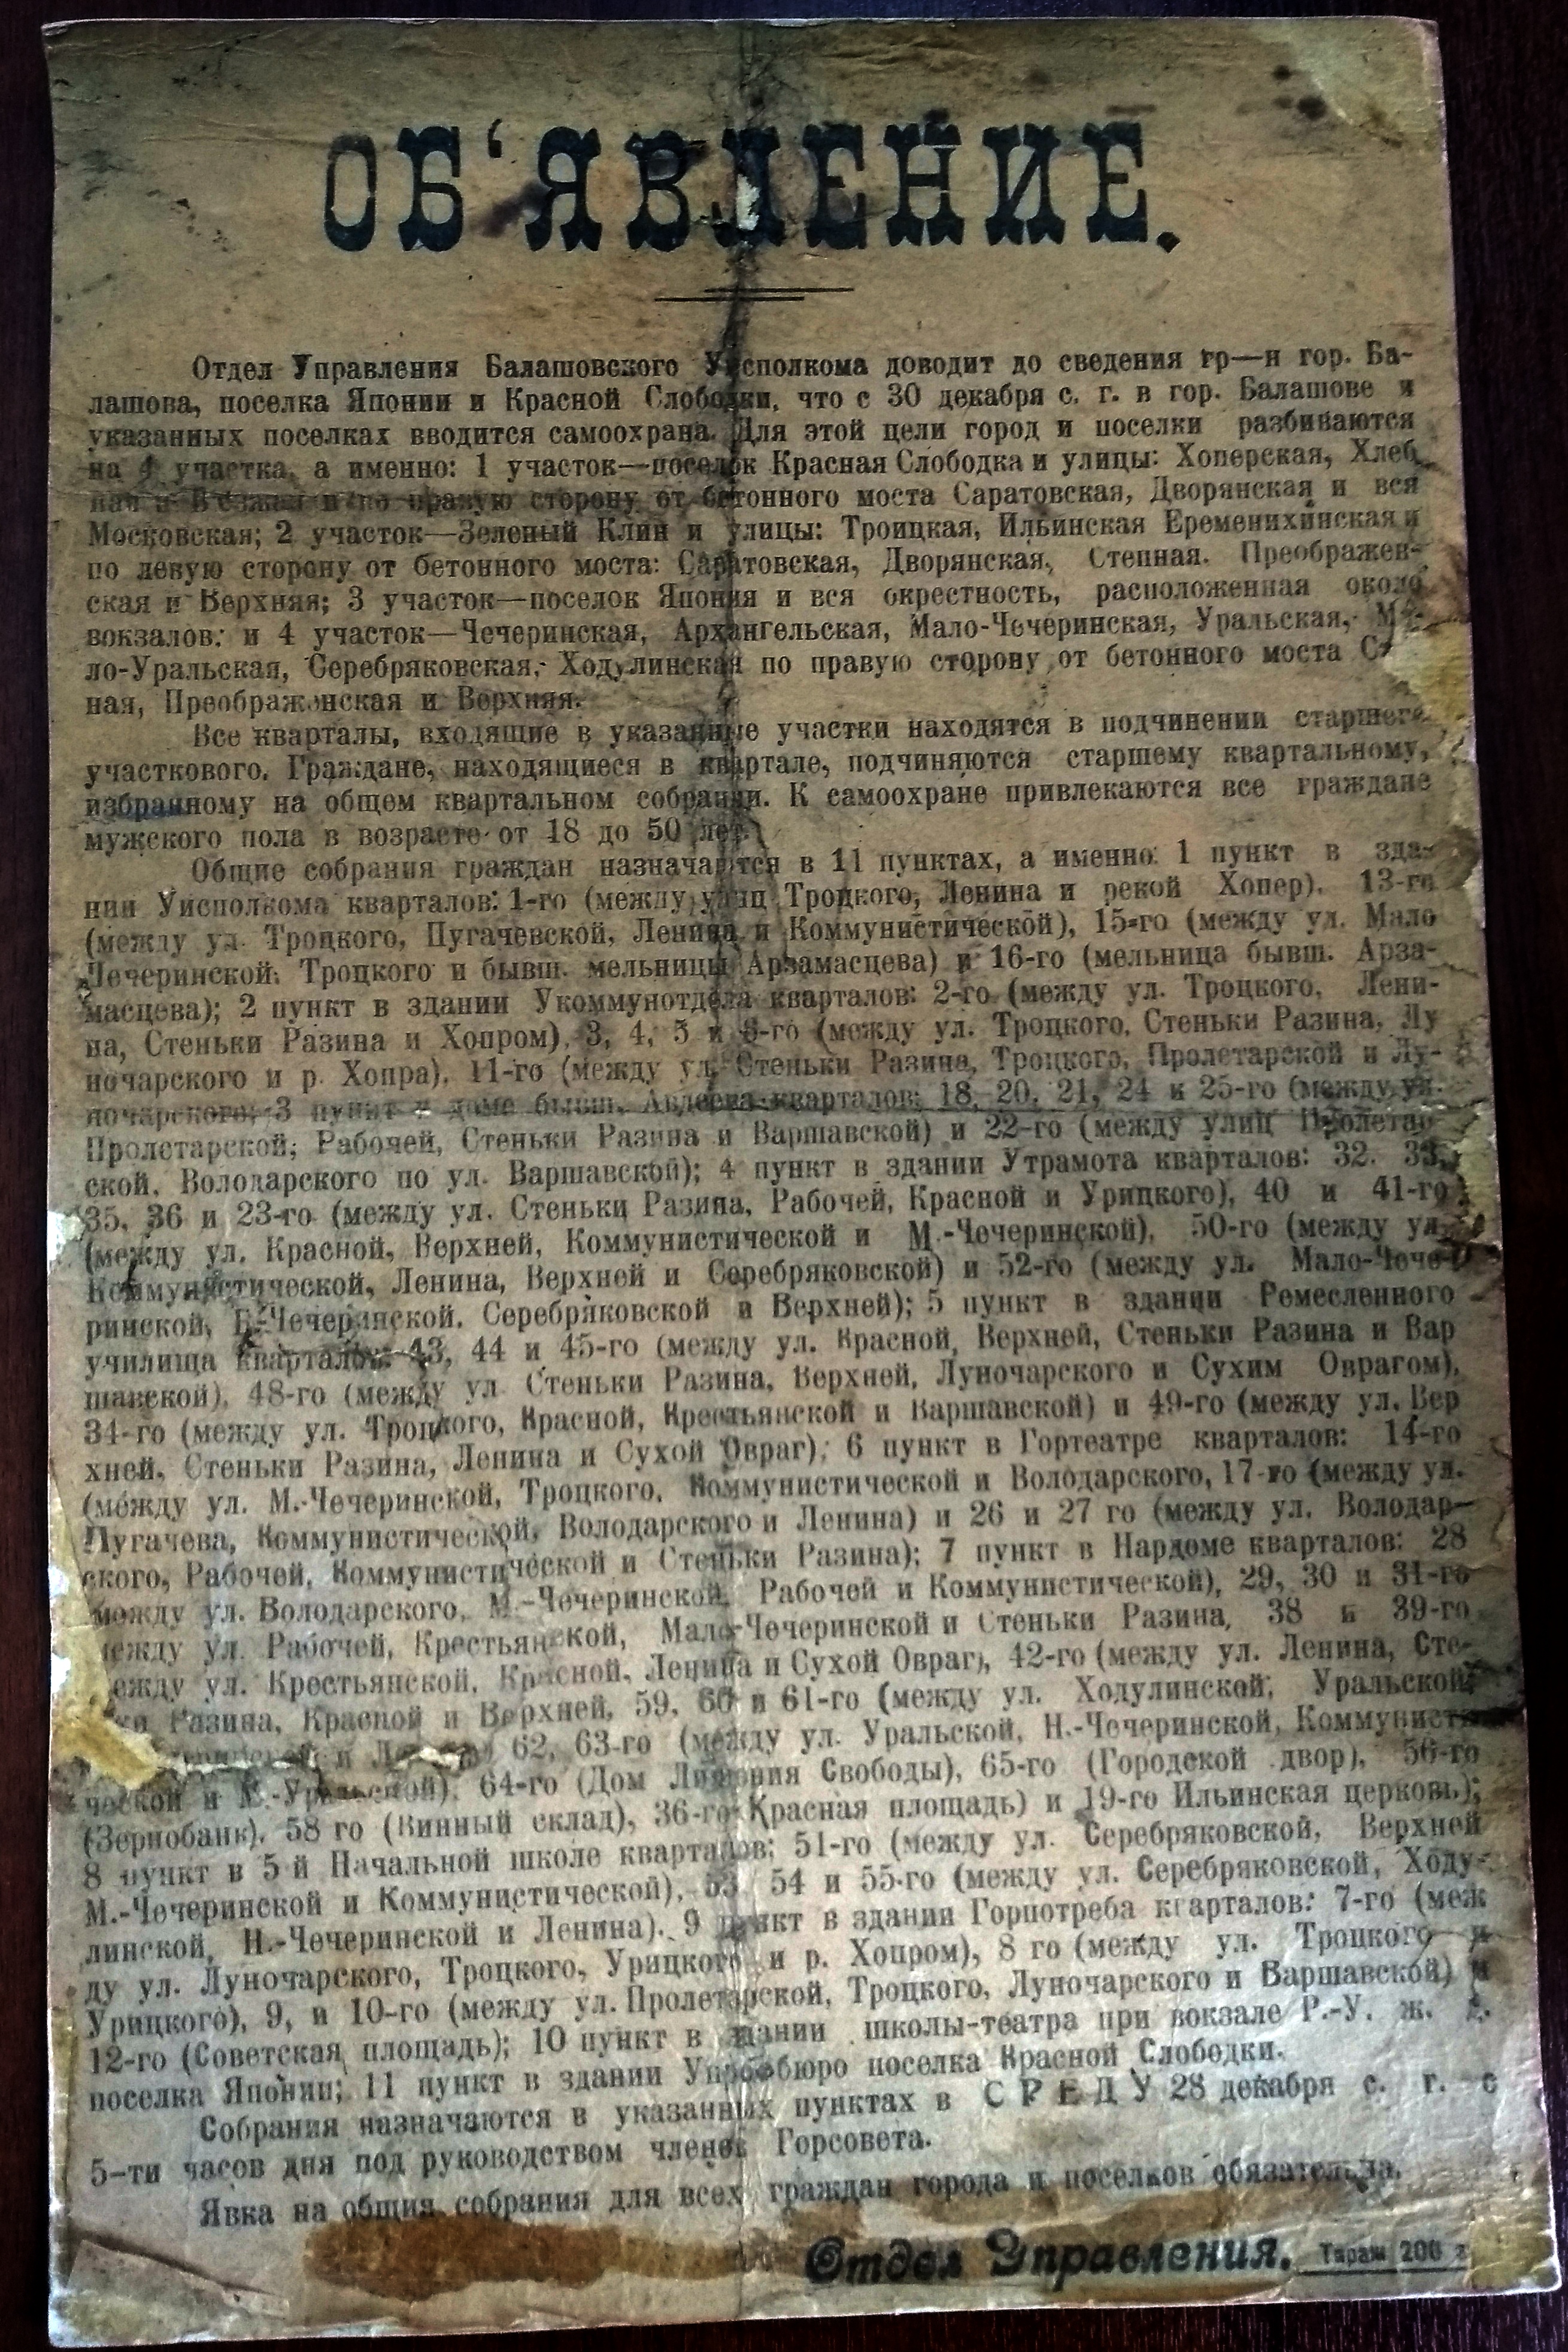 ОБ'ЯВЛЕНИЕ.
Отдел Управления Балашовского Уисполкома доводит до сведения гр—н гор. Ба-
лашова, поселка Японии и Красной Слободки, что с 30 декабря с. г. в гор. Балашове и
указанных поселках вводится самоохрана. Для этой цели город и поселки разбиваются
на 4 участка, а именно: 1 участок—поселок Красная Слободка и улицы: Хоперская, Хлеб
ная и В'езжая и по правую сторону от бетонного моста Саратовская, Дворянская и вся
Московская; 2 участок—Зеленый Клин и улицы: Троицкая, Ильинская Еременихинская и
по левую сторону от бетонного моста: Саратовская, Дворянская, Степная. Преображен-
ская и Верхняя; 3 участок—поселок Япония и вся окрестность, расположенная около
вокзалов: и 4 участок—Чечеринская, Архангельская, Мало-Чечеринская, Уральская,
ло-Уральская, Серебряковская, Ходулинская по правую сторону от бетонного моста
ная, Преображенская и Верхняя.
Все кварталы, входящие в указанные участки находятся в подчинении старшего
участкового. Граждане, находящиеся в квартале, подчиняются старшему квартальному,
избранному на общем квартальном собрании. К самоохране привлекаются все граждане
мужского пола в возрасте от 18 до 50 лет.
Общие собрания граждан назначаются в 11 пунктах, а именно: 1 пункт в зда-
нии Уисполкома кварталов: 1-го (между улиц Троцкого, Ленина и рекой Хопер), 13-го
(между ул. Троцкого, Пугачевской, Ленина и Коммунистической), 15-го (между ул. Мало
Чечеринской, Троцкого и бывш. мельницы Арзамасцева) и 16-го (мельница бывш. Арза-
масцева); 2 пункт в здании Укоммунотдела кварталов: 2-го (между ул. Троцкого, Лени-
на, Стеньки Разина и Хопром), 3, 4, 5 и 6-го (между ул. Троцкого, Стеньки Разина, Лу
ночарского и р. Хопра), 11-го (между ул. Стеньки Разина, Троцкого, Пролетарской и Лу-
ночарского; 3 пункт в доме бывш. Авдеева кварталов: 18, 20, 21, 24 и 25-го (между ул.
Пролетарской, Рабочей, Стеньки Разина и Варшавской) и 22-го (между улиц Пролетар
ской, Володарского по ул. Варшавской); 4 пункт в здании Утрамота кварталов: 32. 33,
35, 36 и 23-го (между ул. Стеньки Разина, Рабочей, Красной и Урицкого), 40 и 41-го
(между ул. Красной, Верхней, Коммунистической и М.-Чечеринской), 50-го (между ул.
Коммунистической, Ленина, Верхней и Серебряковской) и 52-го (между ул. Мало-Чече-
ринской, Б.-Чечеринской, Серебряковской и Верхней); 5 пункт в здании Ремесленного
училища кварталов: 43, 44 и 45-го (между ул. Красной, Верхней, Стеньки Разина и Вар
шавской), 48-го (между ул Стеньки Разина, Верхней, Луночарского и Сухим Оврагом),
34-го (между ул. Троцкого, Красной, Крестьянской и Варшавской) и 49-го (между ул. Вер
хней, Стеньки Разина, Ленина и Сухой Овраг); 6 пункт в Гортеатре кварталов: 14-го
(между ул. М.-Чечеринской, Троцкого, Коммунистической и Володарского, 17-го (между ул.
Пугачева, Коммунистической, Володарского и Ленина) и 26 и 27 го (между ул. Володар—
ского, Рабочей, Коммунистической и Стеньки Разина); 7 пункт в Нардоме кварталов: 28
между ул. Володарского, М.-Чечеринской, Рабочей и Коммунистической), 29, 30 и 31-го
между ул. Рабочей, Крестьянской, Мало-Чечеринской и Стеньки Разина, 38 и 39-го
между ул. Крестьянской, Красной, Ленина и Сухой Овраг), 42-го (между ул. Ленина, Сте-
Разина, Красной и Верхней, 59, 60 и 61-го (между ул. Ходулинской, Уральской,
62, 63-го (между ул. Уральской, Н.-Чечеринской, Коммунисти
ческой и Уральской), 64-го (Дом Свободы), 65-го (Городской двор), 56-го
(Зернобанк), 58 го (Винный склад), 36-го Красная площадь) и 19-го Ильинская церковь);
8 пункт в 5 й Начальной школе кварталов: 51-го (между ул. Серебряковской, Верхней
М.-Чечеринской и Коммунистической), 53 54 и 55-го (между ул. Серебряковской, Ходу-
линской, Н.-Чечеринской и Ленина). 9 пункт в здании Горпотреба кварталов: 7-го (меж
ду ул. Луночарского, Троцкого, Урицкого и р. Хопром), 8 го (между ул. Троцкого и
Урицкого), 9, и 10-го (между ул. Пролетарской, Троцкого, Луночарского и Варшавской) и
12-го (Советская площадь); 10 пункт в здании школы-театра при вокзале Р.-У. ж. д.
поселка Японии; 11 пункт в здании Упрофбюро поселка Красной Слободки.
Собрания назначаются в указанных пунктах в СРЕДУ 28 декабря с. г. с
5-ти часов дня под руководством членов Горсовета.
Явка на общия собрания для всех граждан города и поселков обязательна.
Отдел Управления. Тираж 200